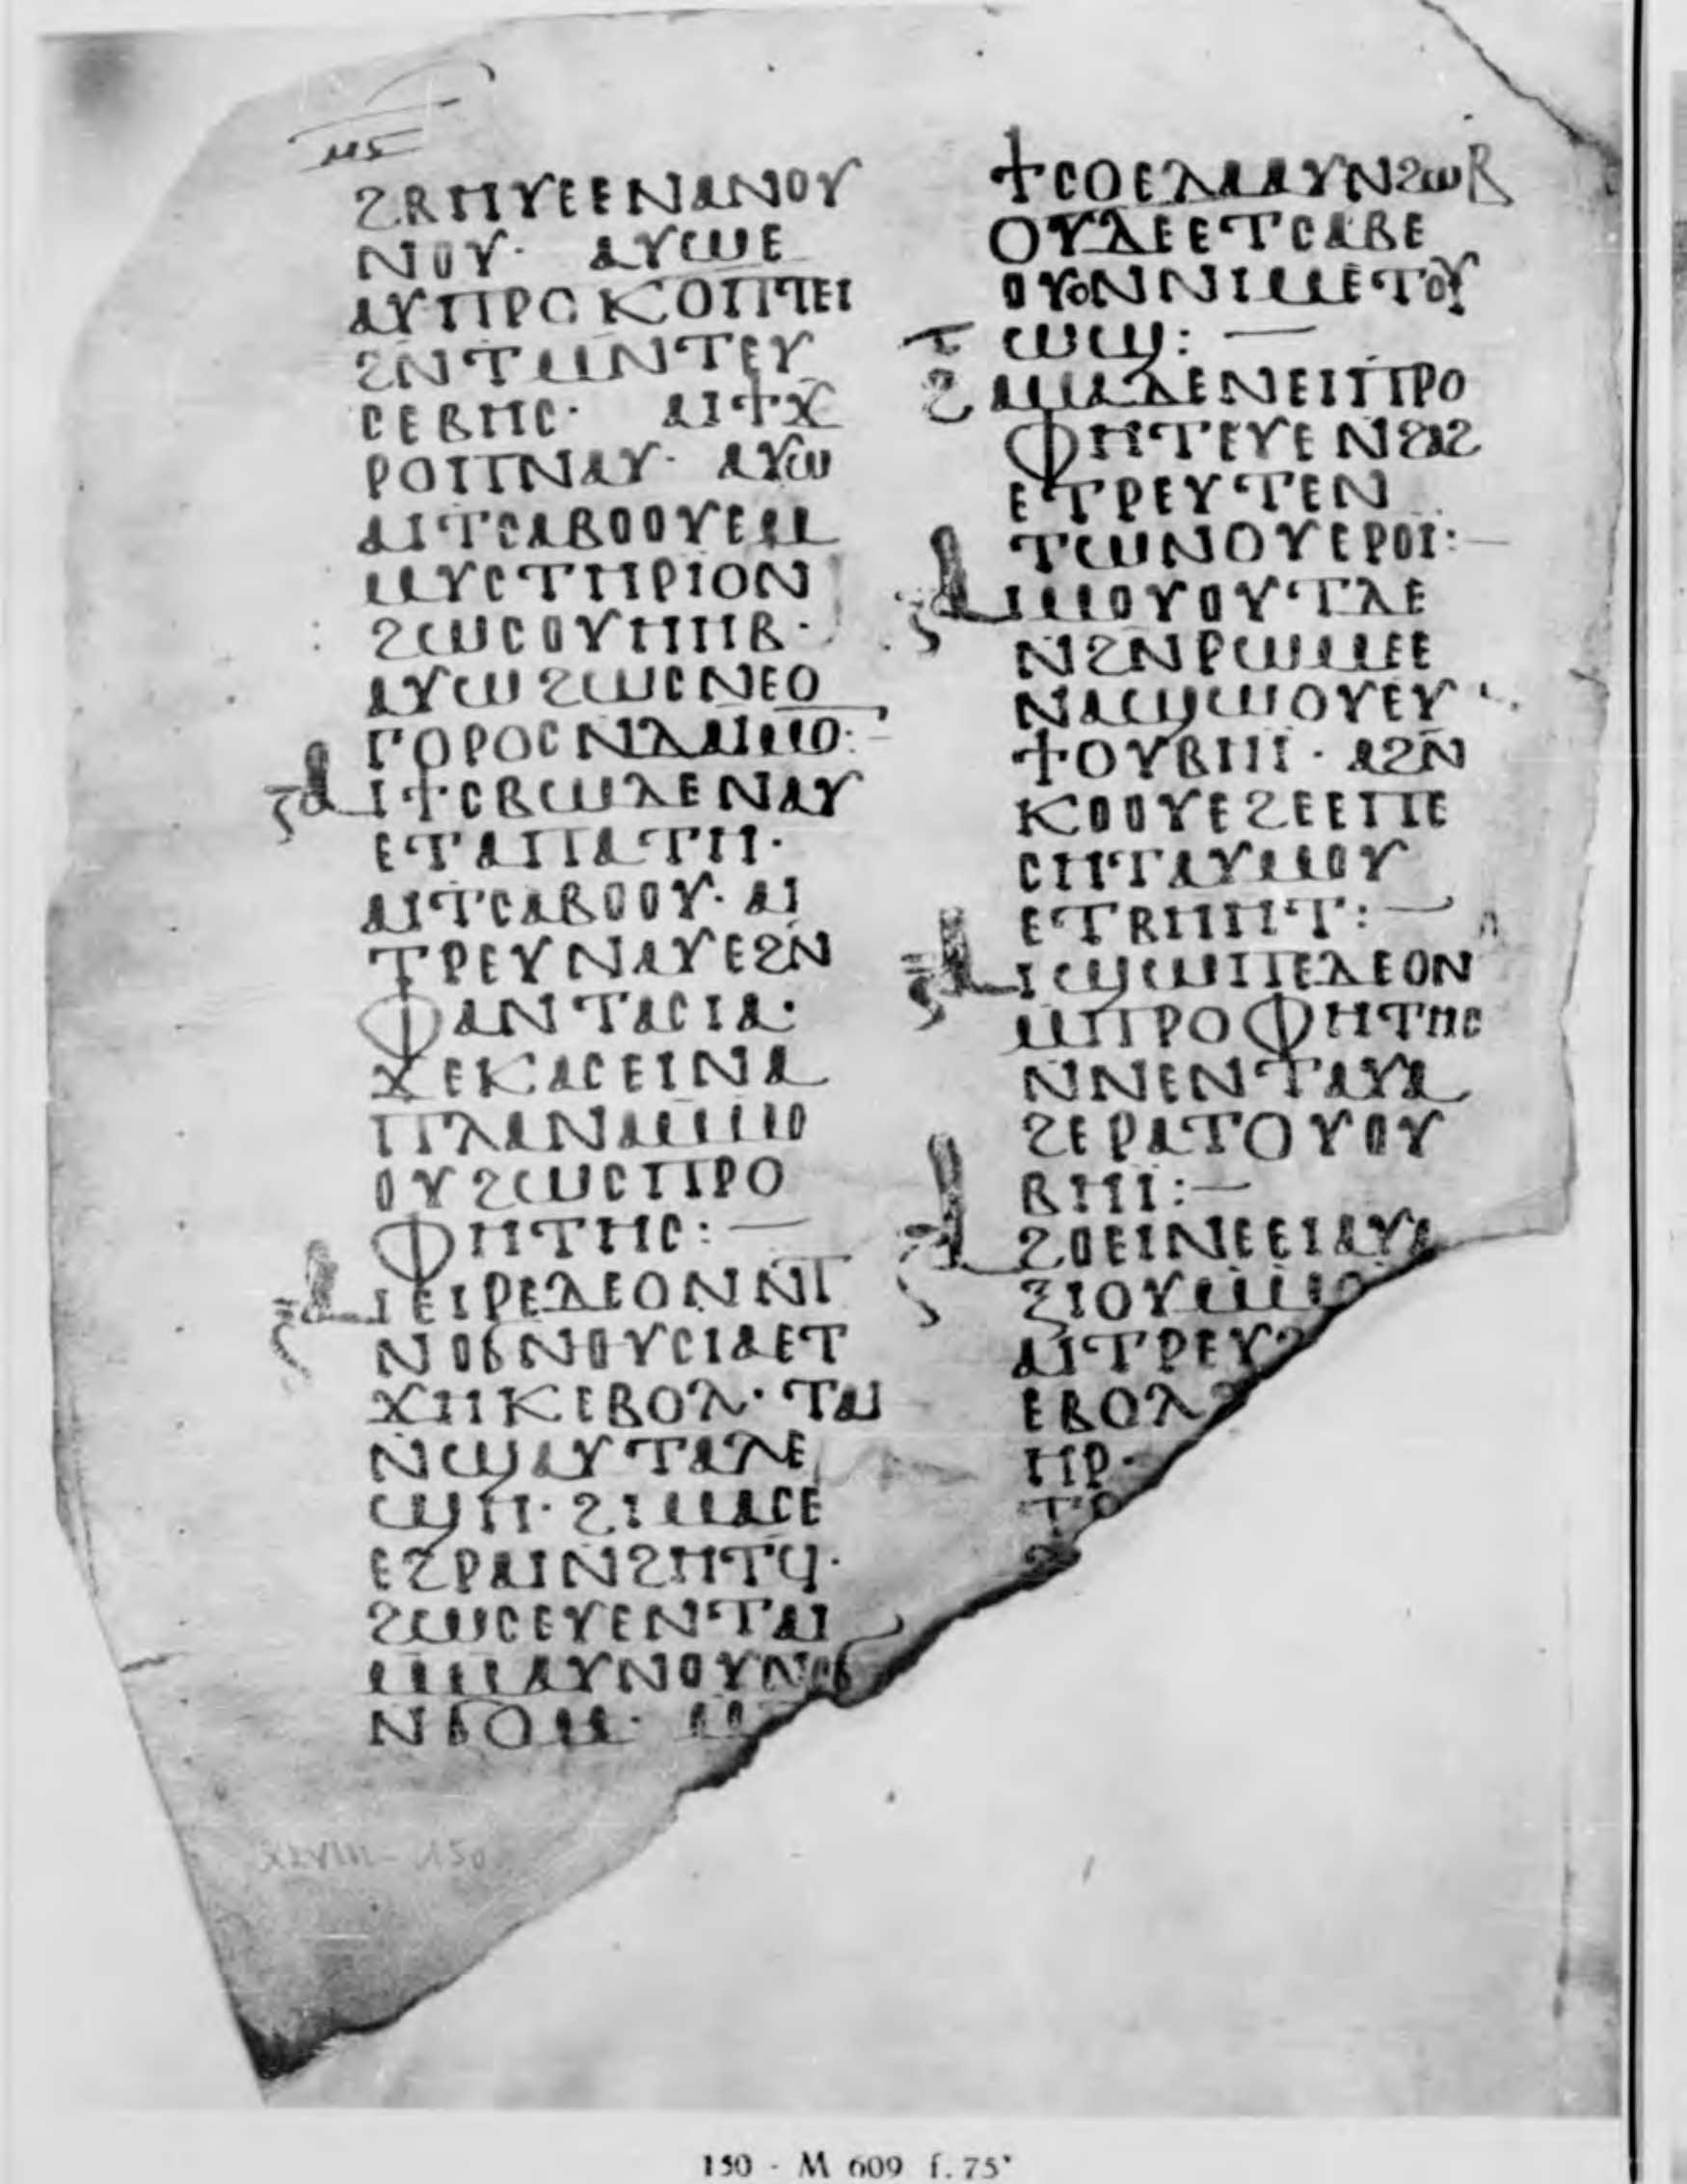 ⲙⲋ
ϩⲃⲏⲩⲉⲉⲛⲁⲛⲟⲩ
ⲛⲟⲩ· ⲁⲩⲱⲉ
ⲁⲩⲡⲣⲟⲕⲟⲡⲧⲉⲓ
ϩⲛⲧⲙⲛⲧⲉⲩ
ⲥⲉⲃⲏⲥ· ⲁⲓϯϫ
ⲣⲟⲡⲛⲁⲩ· ⲁⲩⲱ
ⲁⲓⲧⲥⲁⲃⲟⲟⲩⲉⲙ
ⲙⲩⲥⲧⲏⲣⲓⲟⲛ
ϩⲱⲥⲟⲩⲏⲏⲃ·
ⲁⲩⲱϩⲱⲥⲛⲉⲟ
ⲅⲟⲣⲟⲥⲛⲇⲁⲓⲙⲟ:
ⲁⲓϯⲥⲃⲱⲇⲉⲛⲁⲩ
ⲉⲧⲁⲡⲁⲧⲏ·
ⲁⲓⲧⲥⲁⲃⲟⲟⲩ· ⲁⲓ
ⲧⲣⲉⲩⲛⲁⲩⲉϩⲛ̄
ⲫⲁⲛⲧⲁⲥⲓⲁ·
ϫⲉⲕⲁⲥⲉⲓⲛⲁ
ⲡⲗⲁⲛⲁⲙⲙⲟ
ⲟⲩϩⲱⲥⲡⲣⲟ
ⲫⲏⲧⲏⲥ:—
ⲁⲓⲉⲓⲣⲉⲇⲉⲟⲛⲛⲛⲓ
ⲛⲟϭⲛⲟⲩⲥⲓⲁⲉⲧ
ϫⲏⲕⲉⲃⲟⲗ· ⲧⲁⲓ
ⲛϣⲁⲩⲧⲁⲗⲉ
ϣⲏ· ϩⲓⲙⲁⲥⲉ
ⲉϩⲣⲁⲓⲛϩⲏⲧϥ·
ϩⲱⲥⲉⲩⲉⲛⲧⲁⲓ
ⲙⲙⲁⲩⲛⲟⲩⲛⲟϭ
ⲛϭⲟⲙ· ⲙ
ϯⲥⲟⲉⲗⲁⲁⲩⲛϩⲱⲃ
ⲟⲩⲇⲉⲉⲧⲥⲁⲃⲉ
ⲟⲩⲟⲛⲛⲓⲙⲉⲧⲟⲩ
ⲱϣ:—
ϩⲁⲙⲁⲇⲉⲛⲉⲓⲡⲣⲟ
ⲫⲏⲧⲉⲩⲉⲛϩⲁϩ
ⲉⲧⲣⲉⲩⲧⲉⲛ
ⲧⲱⲛⲟⲩⲉⲣⲟⲓ:—
ⲁⲓⲙⲟⲩⲟⲩⲧⲇⲉ
ⲛϩⲛⲣⲱⲙⲉⲉ
ⲛⲁϣⲱⲟⲩⲉⲩ
ϯⲟⲩⲃⲏⲓ· ⲁϩⲛ̄
ⲕⲟⲟⲩⲉϩⲉⲉⲡⲉ
ⲥⲏⲧⲁⲩⲙⲟⲩ
ⲉⲧⲃⲏⲏⲧ:—
ⲁⲓϣⲱⲡⲉⲇⲉⲟⲛ
ⲙⲡⲣⲟⲫⲏⲧⲏⲥ
ⲛⲛⲉⲛⲧⲁⲩⲁ
ϩⲉⲣⲁⲧⲟⲩⲟⲩ
ⲃⲏⲓ:—
ⲁϩⲟⲉⲓⲛⲉⲉⲓⲁⲩⲁ
ⲝⲓⲟⲩⲙⲙⲟ
ⲁⲓⲧⲣⲉⲩϩ
ⲉⲃⲟⲗϩ
ⲏⲣ·
ⲧⲟ
ϩ
XLVIII-150
150 - M 609 f. 75ᵛ